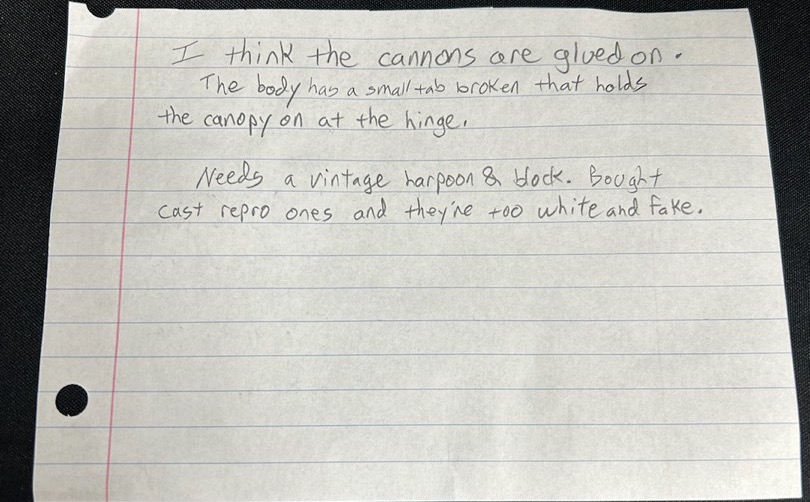 I think the cannons are glued on.
The body has a small tab broken that holds
the canopy on at the hinge.
Needs a vintage harpoon & block. Bought
cast repro ones and they're too white and fake.